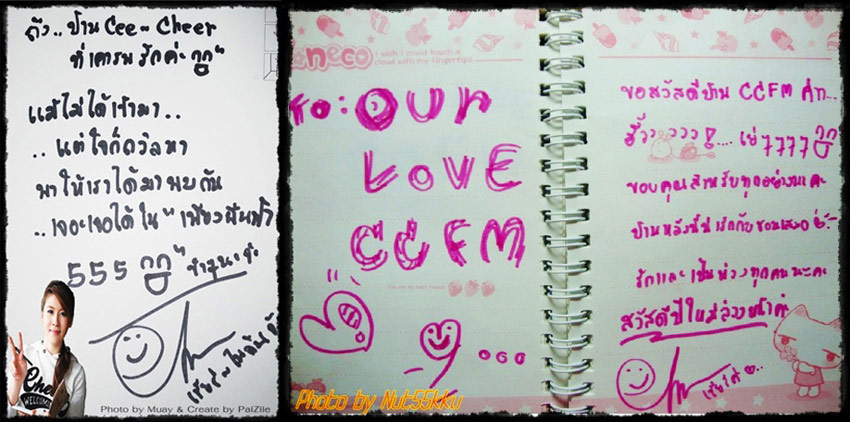 ถึง.. บ้าน Cee ~ Cheer
ที่เคารพรักค่ะ
แม้ไม่ได้เข้ามา..
..แต่ใจก็ถวิลหา
พาให้เราได้มาพบกัน
..เจอะเจอได้ใน "เพียงผืนฟ้า"
555
Cheer
WELCOME
Photo by Muay & Create by PalZile
neco
I wish I could touch a
cloud with my fingertips
To: OUR
LOVE
CCFM
Photo by Nut55kku
ขอสวัสดีบ้าน CCFM ค่า...
ขอบคุณสำหรับทุกอย่างนะคะ
บ้านหลังนี้น่ารักกับขอนเสมอ
รักและเป็นห่วงทุกคนนะคะ
สวัสดีปีใหม่ล่วงหน้าค่ะ